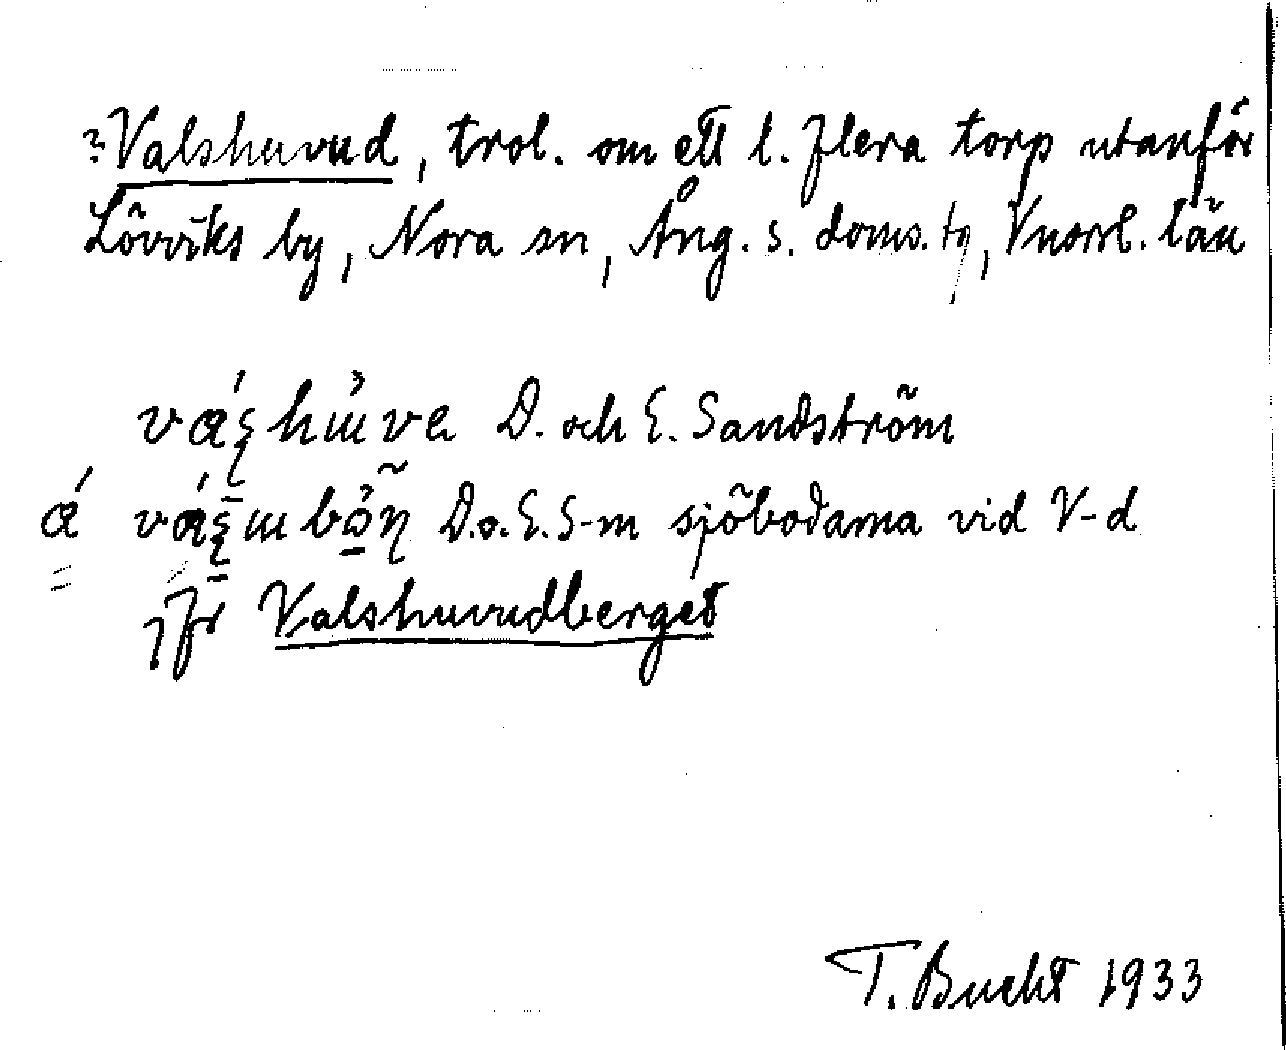 ?Valshuvud, trol. om ett l. flera torp utanför
Lövviks by, Nora sn, Ång. s. doms. tg, Vnorrl. län
D. och E. Sandström
D.o.E.S-m sjöbodarna vid V-d
jfr Valshuvudberget
T. Bucht 1933